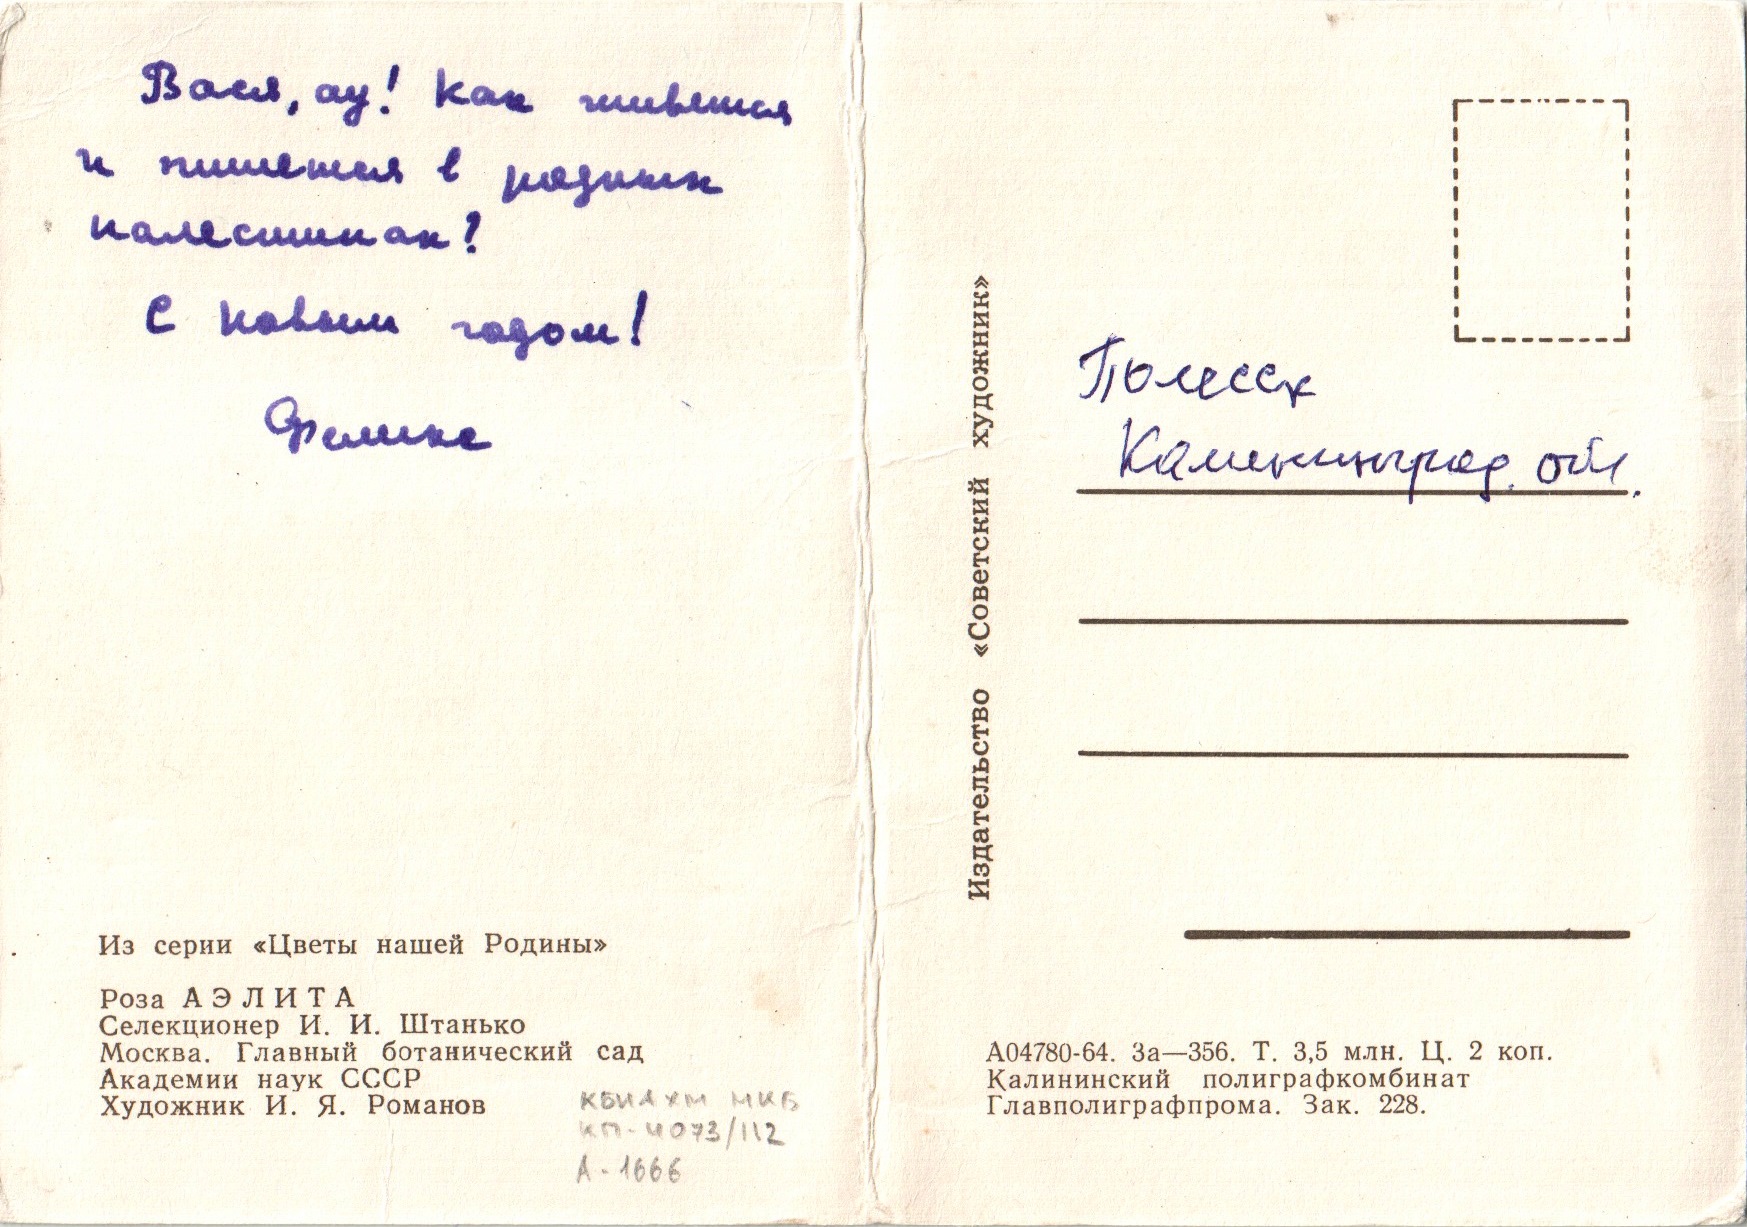 Вася, ау! Как живется
и пишется в родных
палестинах?
С Новым годом!
Феликс
Из серии «Цветы нашей Родины»
Роза АЭЛИТА
Селекционер И. И. Штанько
Москва. Главный ботанический сад
Академии наук СССР
Художник И. Я. Романов
КБИАХМ МКБ
КП-4073/112
А-1666
Издательство «Советский художник»
Полесск
Калининград. обл.
А04780-64. За—356. Т. 3,5 млн. Ц. 2 коп.
Калининский полиграфкомбинат
Главполиграфпрома. Зак. 228.